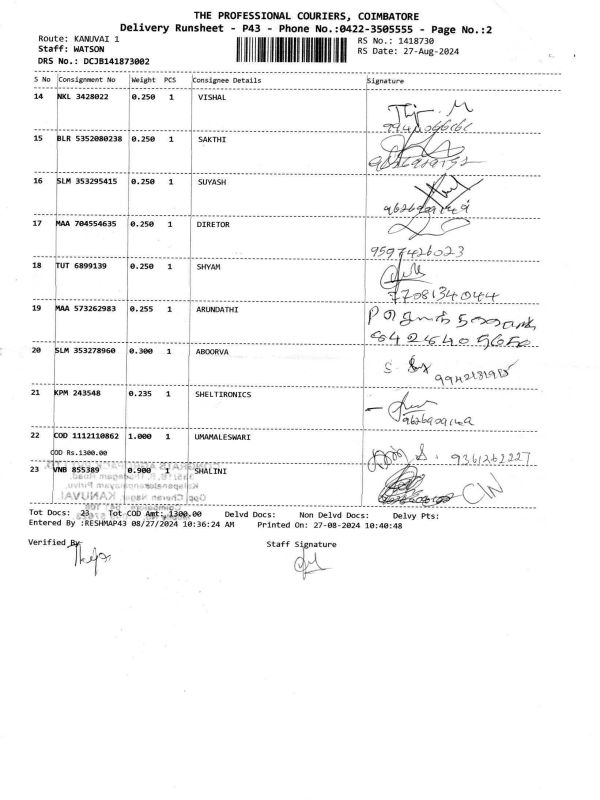 THE PROFESSIONAL COURIERS, COIMBATORE
Delivery Runsheet - P43 - Phone No.:0422-3505555 - Page No.:2
Route: KANUVAI 1
RS No.: 1418730
Staff: WATSON
RS Date: 27-Aug-2024
DRS No.: DCJB141873002
S No Consignment No Weight PCS Consignee Details Signature
14 NKL 3428022 0.250 1 VISHAL
15 BLR 5352080238 0.250 1 SAKTHI
16 SLM 353295415 0.250 1 SUYASH
17 MAA 704554635 0.250 1 DIRETOR
9597426023
18 TUT 6899139 0.250 1 SHYAM
7708134044
19 MAA 573262983 0.255 1 ARUNDATHI
20 SLM 353278960 0.300 1 ABOORVA
21 KPM 243548 0.235 1 SHELTIRONICS
22 COD 1112110862 1.000 1 UMAMALESWARI
COD Rs.1300.00
9361262227
23 VNB 855389 0.900 1 SHALINI
Tot Docs: 23 Tot COD Amt: 1300.00 Delvd Docs: Non Delvd Docs: Delvy Pts:
Entered By :RESHMAP43 08/27/2024 10:36:24 AM Printed On: 27-08-2024 10:40:48
Verified By
Staff Signature